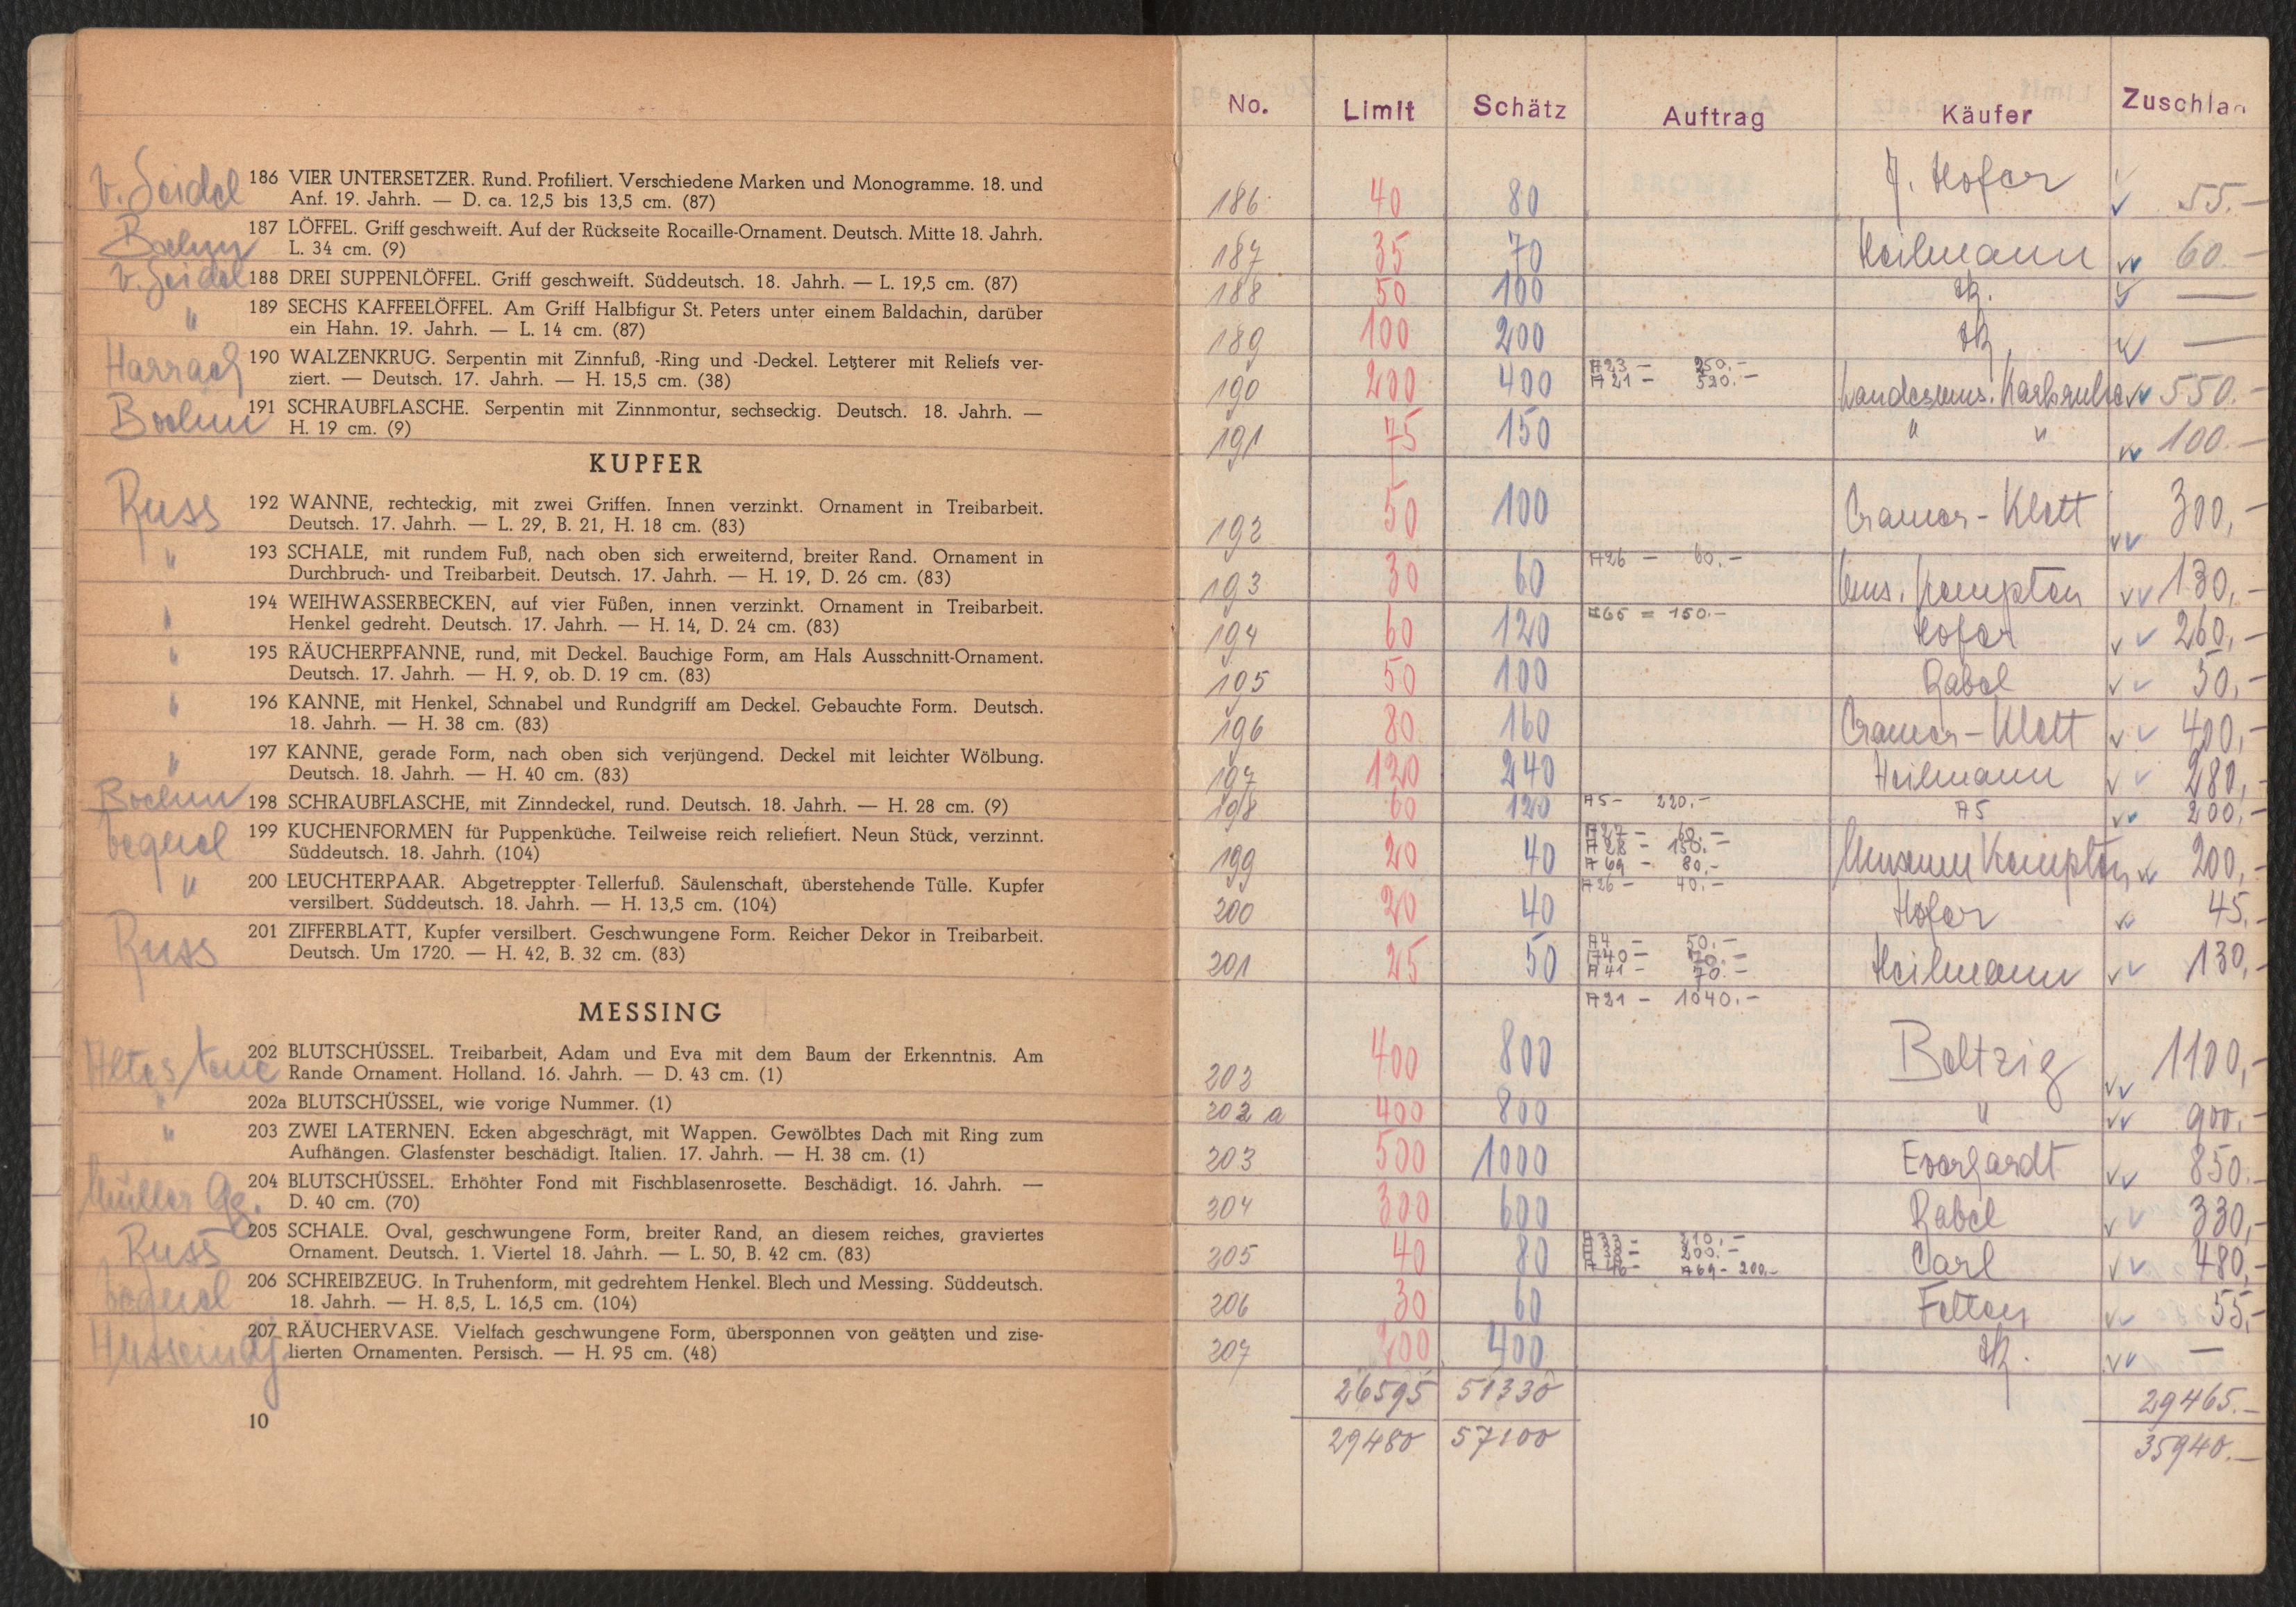 v. Seidel 186 VIER UNTERSETZER. Rund. Profiliert. Verschiedene Marken und Monogramme. 18. und
Anf. 19. Jahrh. — D. ca. 12,5 bis 13,5 cm. (87)
Boehm 187 LÖFFEL. Griff geschweift. Auf der Rückseite Rocaille-Ornament. Deutsch. Mitte 18. Jahrh.
L. 34 cm. (9)
v. Seidel 188 DREI SUPPENLÖFFEL. Griff geschweift. Süddeutsch. 18. Jahrh. — L. 19,5 cm. (87)
" 189 SECHS KAFFEELÖFFEL. Am Griff Halbfigur St. Peters unter einem Baldachin, darüber
ein Hahn. 19. Jahrh. — L. 14 cm. (87)
Harrach 190 WALZENKRUG. Serpentin mit Zinnfuß, -Ring und -Deckel. Letzterer mit Reliefs ver-
ziert. — Deutsch. 17. Jahrh. — H. 15,5 cm. (38)
Boehm 191 SCHRAUBFLASCHE. Serpentin mit Zinnmontur, sechseckig. Deutsch. 18. Jahrh. —
H. 19 cm. (9)
KUPFER
Russ 192 WANNE, rechteckig, mit zwei Griffen. Innen verzinkt. Ornament in Treibarbeit.
Deutsch. 17. Jahrh. — L. 29, B. 21, H. 18 cm. (83)
" 193 SCHALE, mit rundem Fuß, nach oben sich erweiternd, breiter Rand. Ornament in
Durchbruch- und Treibarbeit. Deutsch. 17. Jahrh. — H. 19, D. 26 cm. (83)
" 194 WEIHWASSERBECKEN, auf vier Füßen, innen verzinkt. Ornament in Treibarbeit.
Henkel gedreht. Deutsch. 17. Jahrh. — H. 14, D. 24 cm. (83)
" 195 RÄUCHERPFANNE, rund, mit Deckel. Bauchige Form, am Hals Ausschnitt-Ornament.
Deutsch. 17. Jahrh. — H. 9, ob. D. 19 cm. (83)
" 196 KANNE, mit Henkel, Schnabel und Rundgriff am Deckel. Gebauchte Form. Deutsch.
18. Jahrh. — H. 38 cm. (83)
" 197 KANNE, gerade Form, nach oben sich verjüngend. Deckel mit leichter Wölbung.
Deutsch. 18. Jahrh. — H. 40 cm. (83)
Boehm 198 SCHRAUBFLASCHE, mit Zinndeckel, rund. Deutsch. 18. Jahrh. — H. 28 cm. (9)
199 KUCHENFORMEN für Puppenküche. Teilweise reich reliefiert. Neun Stück, verzinnt.
Süddeutsch. 18. Jahrh. (104)
" 200 LEUCHTERPAAR. Abgetreppter Tellerfuß. Säulenschaft, überstehende Tülle. Kupfer
versilbert. Süddeutsch. 18. Jahrh. — H. 13,5 cm. (104)
Russ 201 ZIFFERBLATT, Kupfer versilbert. Geschwungene Form. Reicher Dekor in Treibarbeit.
Deutsch. Um 1720. — H. 42, B. 32 cm. (83)
MESSING
202 BLUTSCHÜSSEL. Treibarbeit, Adam und Eva mit dem Baum der Erkenntnis. Am
Rande Ornament. Holland. 16. Jahrh. — D. 43 cm. (1)
" 202a BLUTSCHÜSSEL, wie vorige Nummer. (1)
" 203 ZWEI LATERNEN. Ecken abgeschrägt, mit Wappen. Gewölbtes Dach mit Ring zum
Aufhängen. Glasfenster beschädigt. Italien. 17. Jahrh. — H. 38 cm. (1)
Müller Gg. 204 BLUTSCHÜSSEL. Erhöhter Fond mit Fischblasenrosette. Beschädigt. 16. Jahrh. —
D. 40 cm. (70)
Russ 205 SCHALE. Oval, geschwungene Form, breiter Rand, an diesem reiches, graviertes
Ornament. Deutsch. 1. Viertel 18. Jahrh. — L. 50, B. 42 cm. (83)
206 SCHREIBZEUG. In Truhenform, mit gedrehtem Henkel. Blech und Messing. Süddeutsch.
18. Jahrh. — H. 8,5, L. 16,5 cm. (104)
207 RÄUCHERVASE. Vielfach geschwungene Form, übersponnen von geätzten und zise-
lierten Ornamenten. Persisch. — H. 95 cm. (48)
10
No. Limit Schätz Auftrag Käufer Zuschlag
186 40 80 J. Hofer 55.-
187 35 70 Heilmann 60.-
188 50 100 —
189 100 200 —
A23 — 250.-
190 200 400 A21 — 520.- Landesmus. Karlsruhe 550.-
191 75 150 " " 100.-
192 50 100 Cramer-Klett 300,-
193 30 60 A26 — 60.- Mus. Kempten 130,-
194 60 120 A65 = 150.- Hofer 260,-
195 50 100 Rabel 50,-
196 80 160 Cramer-Klett 400,-
197 120 240 Heilmann 280,-
198 60 120 A5 - 220,- A5 200,-
A27 — 60.-
A28 — 150.-
199 20 40 A69 — 80,- Museum Kempten 200,-
200 20 40 A26 — 40,- Hofer 45,-
A4 — 50.-
A40 —
201 25 50 A41 — 70.- Heilmann 130,-
A21 — 1040.-
202 400 800 Beltzig 1100,-
202a 400 800 " 900,-
203 500 1000 Everhardt 850.-
204 300 600 Rabel 330,-
A33 — 210,-
A38 — 200.-
205 40 80 A46 — A69 - 200,- Carl 480,-
206 30 60 Felten 55,-
207 200 400 —
26595 51330 29465.-
29480 57100 35940.-